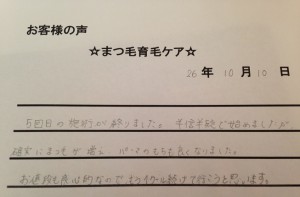 お客様の声
☆まつ毛育毛ケア☆
26 年 10 月 10 日
5回目の施術が終りました。半信半疑で始めましたが
確実にまつ毛が増え、パーマのもちも良くなりました。
お値段も良心的なのでもう1クール続けて行こうと思います。